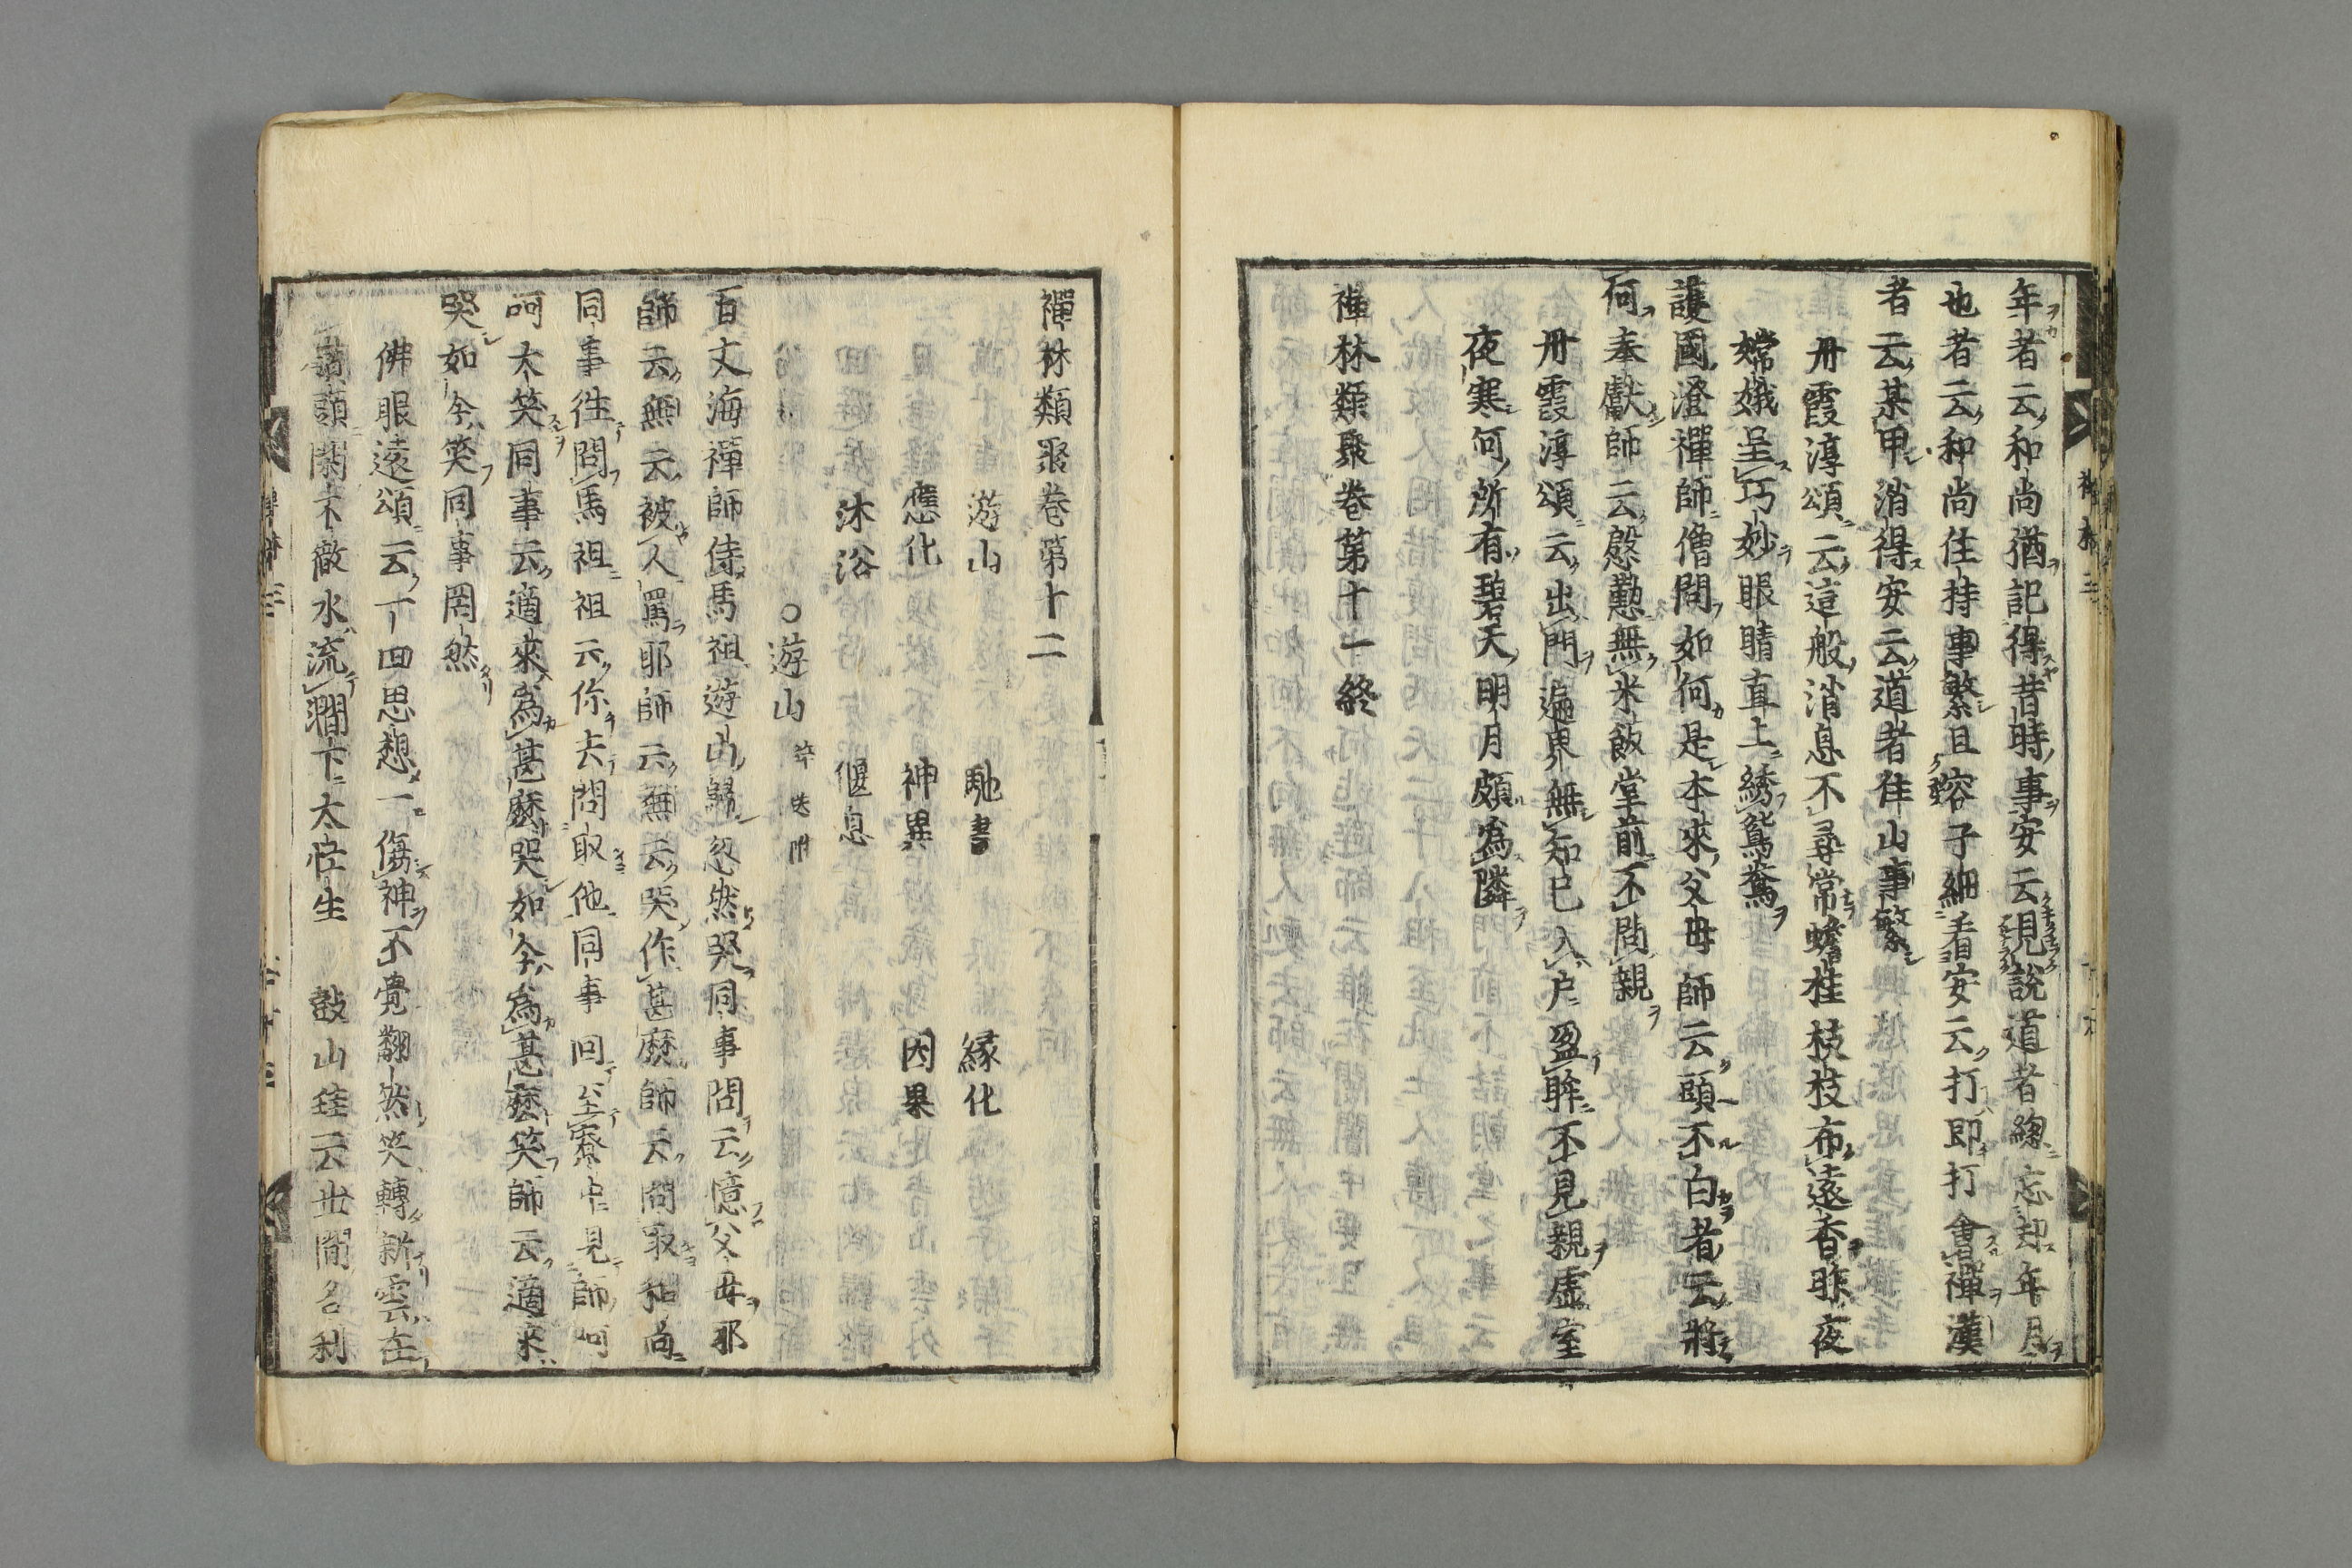 年者云和尚猶記得昔時事安云見說道者緫忘却年月
也者云和尚住持事繁且容子細看安云打即打會禪漢
者云某甲消得安云道者住山事繁
丹霞淳頌云這般消息不尋常蟾桂枝枝布遠香昨夜
嫦娥呈巧妙眼睛直上綉鴛鴦
護國澄禪師僧問如何是本來父母師云頭不白者云將
何奉獻師云慇懃無米飯堂前不問親
丹霞淳頌云出門遍界無知己入户盈眸不見親虛室
夜寒何所有碧天明月頗為隣
禪林類聚卷第十一終
禪林類聚卷第十二
遊山 馳書 縁化
應化 神異 因果
沐浴 偃息
○遊山
百丈海禪師侍馬祖遊山歸忽然哭同事問云憶父母耶
師云無云被人罵耶師云無云哭作甚麽師云問取和尚
同事往問馬祖祖云你去問取他同事回至寮中見師呵
呵大笑同事云適來為甚麽哭如今為甚麽笑師云適來
哭如今笑同事罔然
佛眼遠頌云一回思想一傷神不覺翻然笑轉新雲在
嶺頭閑不徹水流澗下太忙生 鼓山珪云世間名利